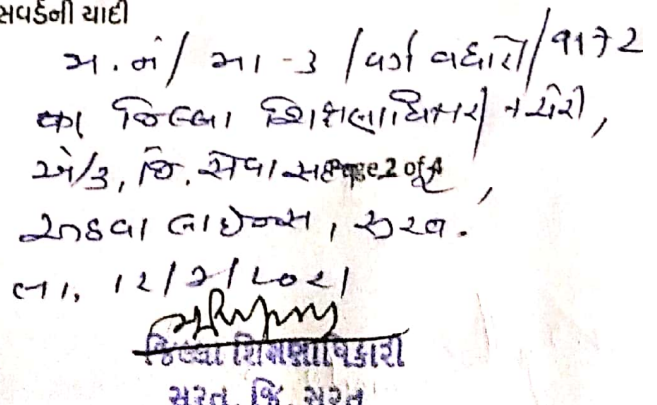 સવર્ડની યાદી
મ. નં/ મા -૩ /વર્ગ વધારો/૧૧૭૨
જિલ્લા શિક્ષણાધિકારી કચેરી,
એ/૩, જિ. સેવા સદન Page 2 of 4
અઠવા લાઈન્સ, સુરત.
તા. ૧૨/૨/૨૦૨૧
જિલ્લા શિક્ષણાધિકારી
સુરત. જિ. સુરત